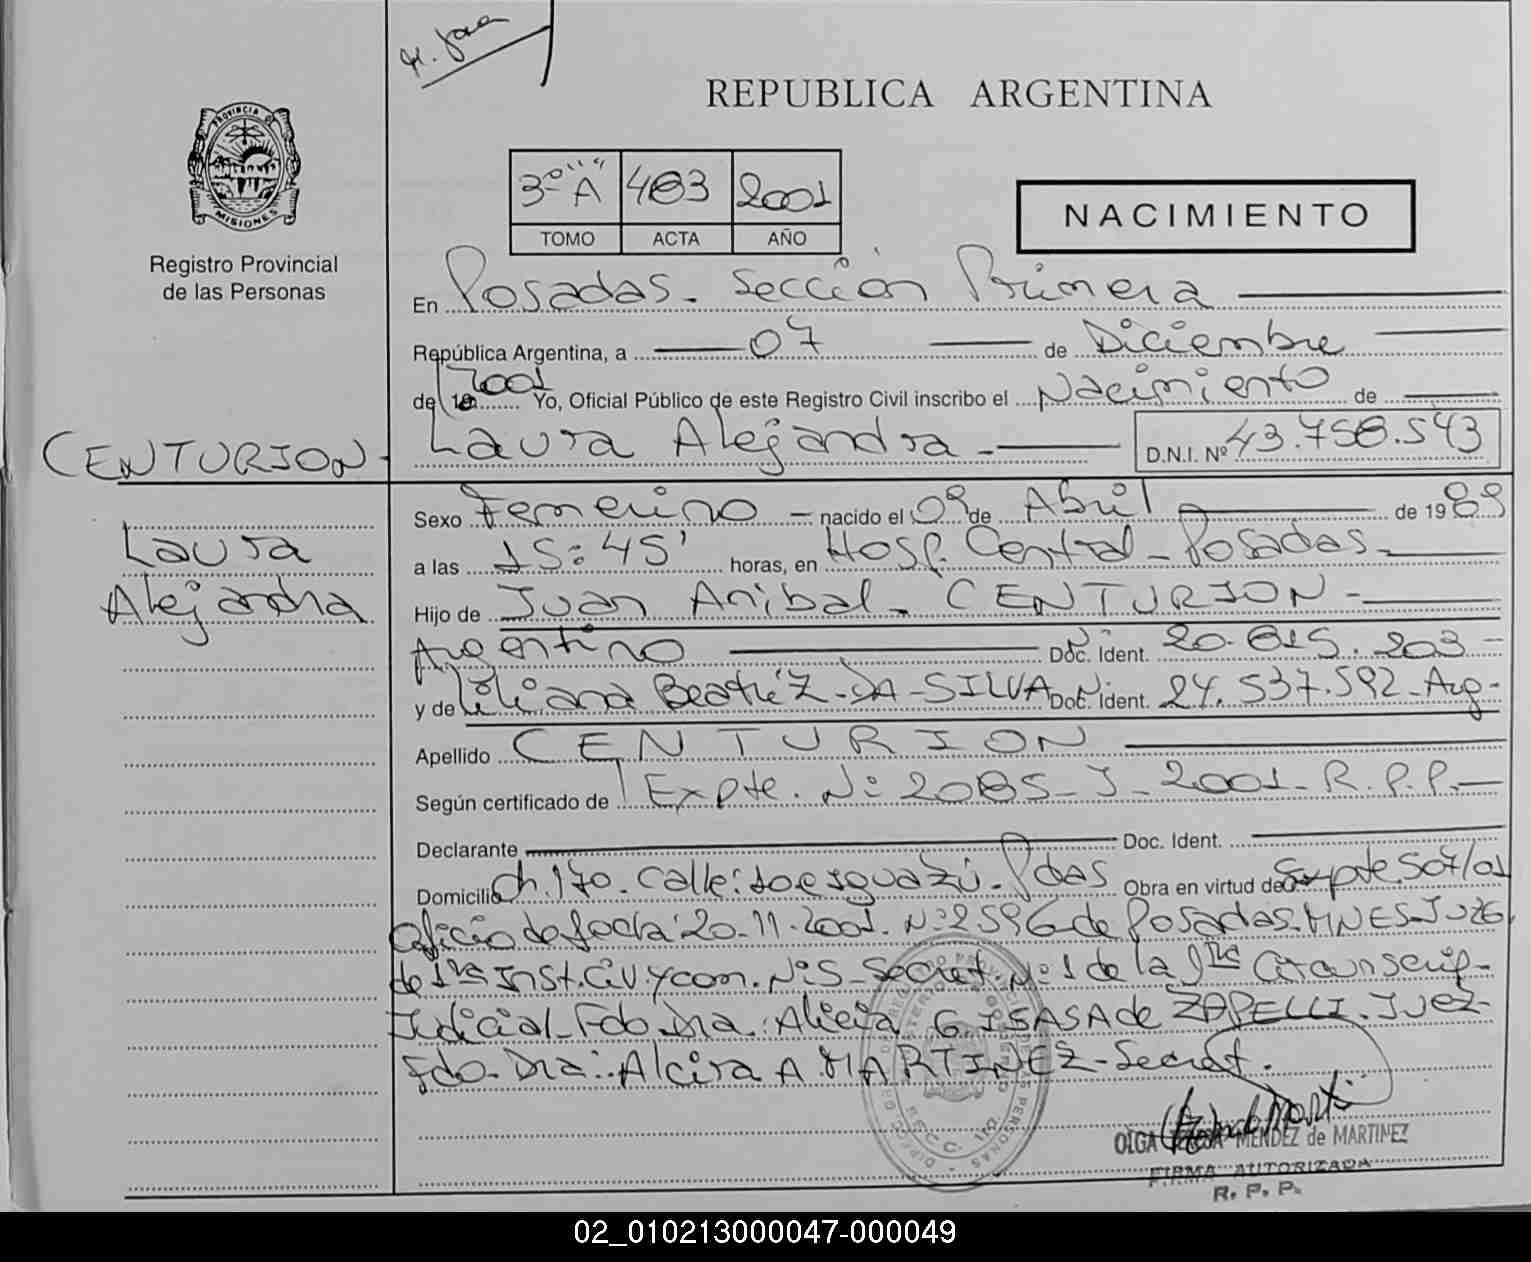 REPUBLICA ARGENTINA
PROVINCIA DE
MISIONES
Registro Provincial
de las Personas
3º "A" 483 2001
TOMO ACTA AÑO
NACIMIENTO
En Posadas - Sección Primera
República Argentina, a 07 de Diciembre
de 2001 Yo, Oficial Público de este Registro Civil inscribo el Nacimiento de
CENTURION -
Laura Alejandra - D.N.I. Nº 43.758.543
Laura
Alejandra
Sexo Femenino - nacido el 09 de Abril de 1989
a las 15:45' horas, en Hosp. Central - Posadas -
Hijo de Juan Anibal - CENTURION -
Argentino Doc. Ident. 20.815.203 -
y de Liliana Beatriz - DA - SILVA Doc. Ident. 24.537.592 - Arg -
Apellido CENTURION
Según certificado de Expte. Nº 2085 - J - 2001 - R.P.P. -
Declarante Doc. Ident.
Domicilio Ch. 170. Calle: Pdas Obra en virtud de Expte 507/01
Oficio de fecha: 20-11-2001. Nº 2596 de Posadas - MNES - Juzg.
de 1ra Inst. Civ. y Com. Nº 5 - Secret. Nº 1 de la 1ra Circunscrip-
Judicial - Fdo. Dra. : Alicia G. ISASA de ZAPELLI. Juez -
Fdo. Dra: Alcira A MARTINEZ - Secret.
OLGA MENDEZ de MARTINEZ
FIRMA AUTORIZADA
R. P. P.
02_010213000047-000049